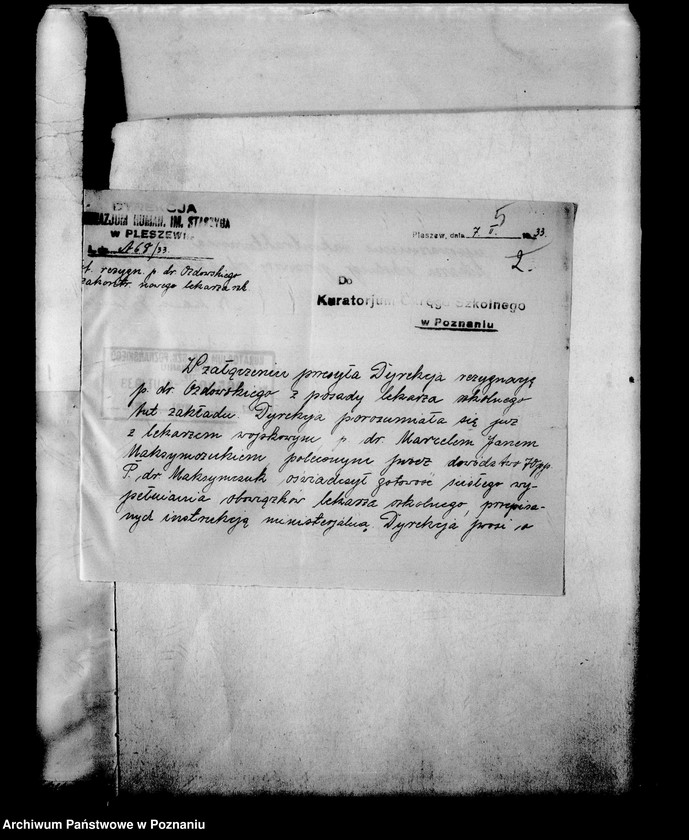 5
DYREKCJA
GIMNAZJUM HUMAN. IM. STASZYCA
W PLESZEWIE
L. dz. A 68/33.
Pleszew, dnia 7. II. 1933.
2.
st. rezygn. p. dr. Ozdowskiego
zakontr. nowego lekarza szk.
Do
Kuratorjum Okręgu Szkolnego
w Poznaniu
W załączeniu przesyła Dyrekcja rezygnację
p. dr. Ozdowskiego z posady lekarza szkolnego
tut. zakładu. Dyrekcja porozumiała się już
z lekarzem wojskowym p. dr. Marcelem Janem
Maksymczukiem poleconym przez dowództwo 70 pp.
P. dr. Maksymczuk oświadczył gotowość ścisłego wy-
pełniania obowiązków lekarza szkolnego, przepisa-
nych instrukcją ministerjalną. Dyrekcja prosi o
Archiwum Państwowe w Poznaniu